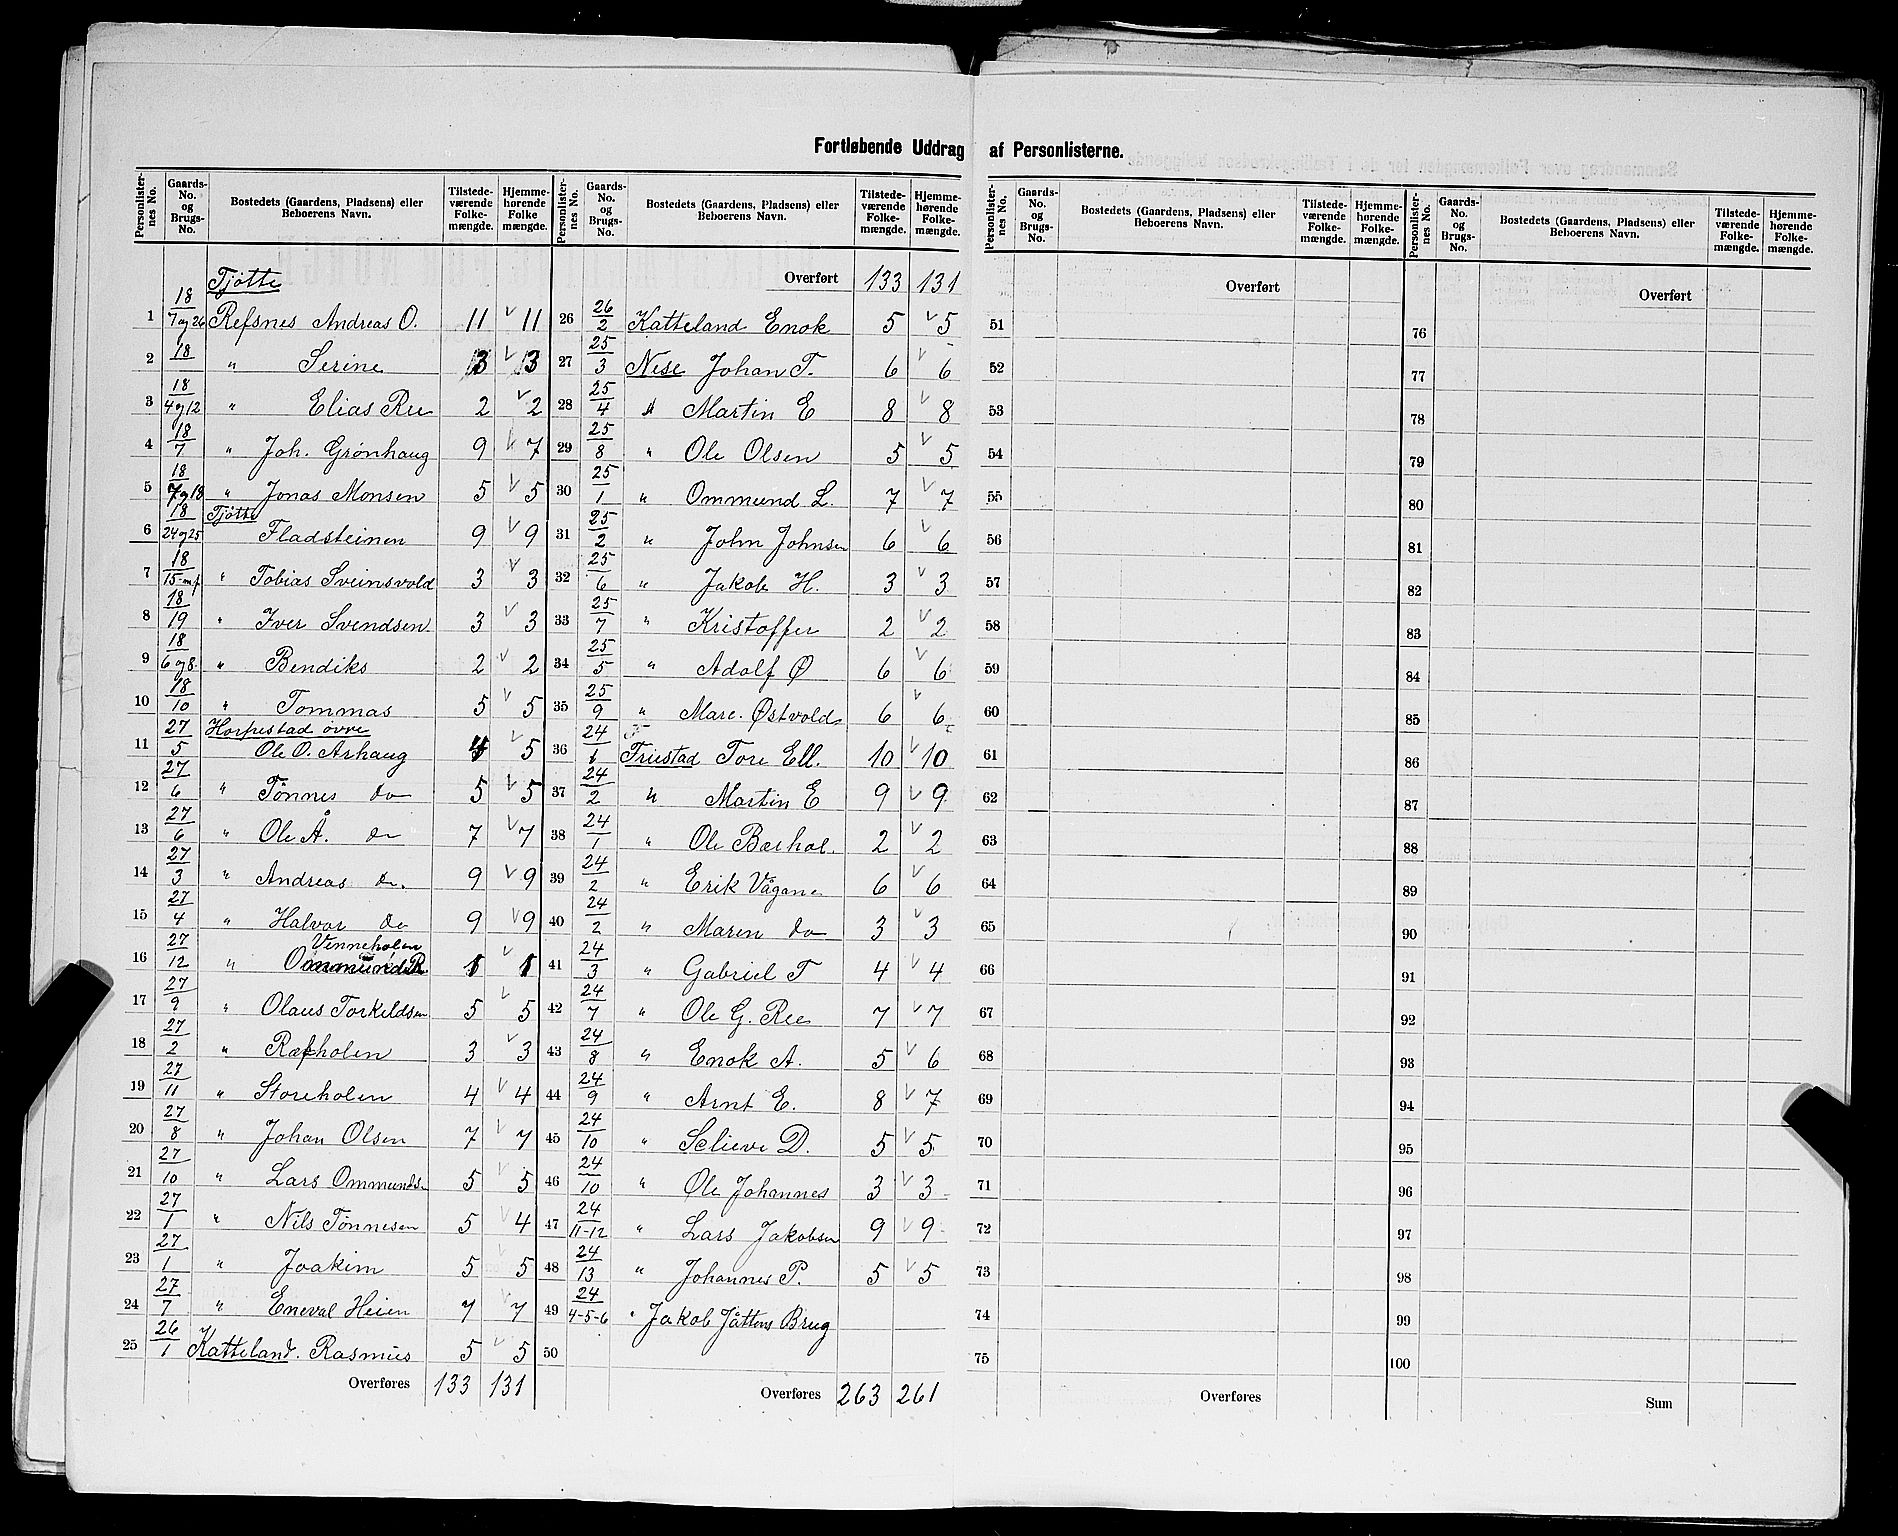 Fortløbende Uddrag af Personlisterne.
Personlister-nes No. | Gaards-No. og Brugs-No. | Bostedets (Gaardens, Pladsens) eller Beboerens Navn. | Tilstede-værende Folke-mængde. | Hjemme-hørende Folke mængde.
Tjøtte
1 | 18/7 og 26 | Refsnes Andreas O. | 11 | 11
2 | 18 | " Serine | 13 | 13
3 | 18/4 og 12 | " Elias Ree | 2 | 2
4 | 18/7 | " Joh. Grønhaug | 9 | 7
5 | 18/7 og 18 | " Jonas Monsen | 5 | 5
Tjøtte
6 | 18/24 og 25 | Fladsteinen | 9 | 9
7 | 18/15 | " Tobias Sveinsvold | 3 | 3
8 | 18/19 | " Iver Svendsen | 3 | 3
9 | 18/6 og 8 | " Bendiks | 2 | 2
10 | 18/10 | " Tommas | 5 | 5
Horpestad øvre
11 | 27/5 | Ole O. Arhaug | 4 | 5
12 | 27/6 | " Tønnes do | 5 | 5
13 | 27/6 | " Ole Å. do | 7 | 7
14 | 27/3 | " Andreas do. | 9 | 9
15 | 27/4 | " Halvor do | 9 | 9
Venneholen
16 | 27/12 | " Ommund R. | 1 | 1
17 | 27/9 | " Olaus Torkildsen | 5 | 5
18 | 27/2 | " Ræfholen | 3 | 3
19 | 27/11 | " Storeholen | 4 | 4
20 | 27/8 | " Johan Olsen | 7 | 7
21 | 27/10 | " Lars Ommundsn | 5 | 5
22 | 27/1 | " Nils Tønnesen | 5 | 4
23 | 27/1 | " Joakim | 5 | 5
24 | 27/7 | " Eneval Heien | 7 | 7
25 | 26/1 | Katteland. Rasmus | 5 | 5
Overføres | 133 | 131
Personlister-nes No. | Gaards-No. og Brugs-No. | Bostedets (Gaardens, Pladsens) eller Beboerens Navn. | Tilstede-værende Folke-mængde. | Hjemme-hørende Folke-mængde.
Overført | 133 | 131
26 | 26/2 | Katteland Enok | 5 | 5
27 | 25/3 | Nese Johan T. | 6 | 6
28 | 25/4 | " Martin E | 8 | 8
29 | 25/8 | " Ole Olsen | 5 | 5
30 | 25/1 | " Ommund L. | 7 | 7
31 | 25/2 | " John Johnsen | 6 | 6
32 | 25/6 | " Jakob H. | 3 | 3
33 | 25/7 | " Kristoffer | 2 | 2
34 | 25/5 | " Adolf Ø | 6 | 6
35 | 25/9 | " Mare. Østvold | 6 | 6
36 | 24/1 | Friestad Tore Ell. | 10 | 10
37 | 24/2 | " Martin E | 9 | 9
38 | 24/1 | " Ole Barhol. | 2 | 2
39 | 24/2 | " Erik Vågane | 6 | 6
40 | 24/2 | " Maren do | 3 | 3
41 | 24/3 | " Gabriel T | 4 | 4
42 | 24/7 | " Ole G. Ree | 7 | 7
43 | 24/8 | " Enok A. | 5 | 6
44 | 24/9 | " Arnt E. | 8 | 7
45 | 24/10 | " Selieve D. | 5 | 5
46 | 24/10 | " Ole Johannes | 3 | 3
47 | 24/11-12 | " Lars Jakobsen | 9 | 9
48 | 24/13 | " Johannes P. | 5 | 5
49 | 24/4-5-6 | " Jakob Jåttens Brug
50
Overføres | 263 | 261
Personlister-nes No. | Gaards-No. og Brugs-No. | Bostedets (Gaardens, Pladsens) eller Beboerens Navn. | Tilstede-værende Folke-mængde. | Hjemme-hørende Folke-mængde.
Overført
51
52
53
54
55
56
57
58
59
60
61
62
63
64
65
66
67
68
69
70
71
72
73
74
75
Overføres
Personlister-nes No. | Gaards-No. og Brugs-No. | Bostedets (Gaardens, Pladsens) eller Beboerens Navn. | Tilstede-værende Folke-mængde. | Hjemme-hørende Folke-mængde.
Overført
76
77
78
79
80
81
82
83
84
85
86
87
88
89
90
91
92
93
94
95
96
97
98
99
100
Sum